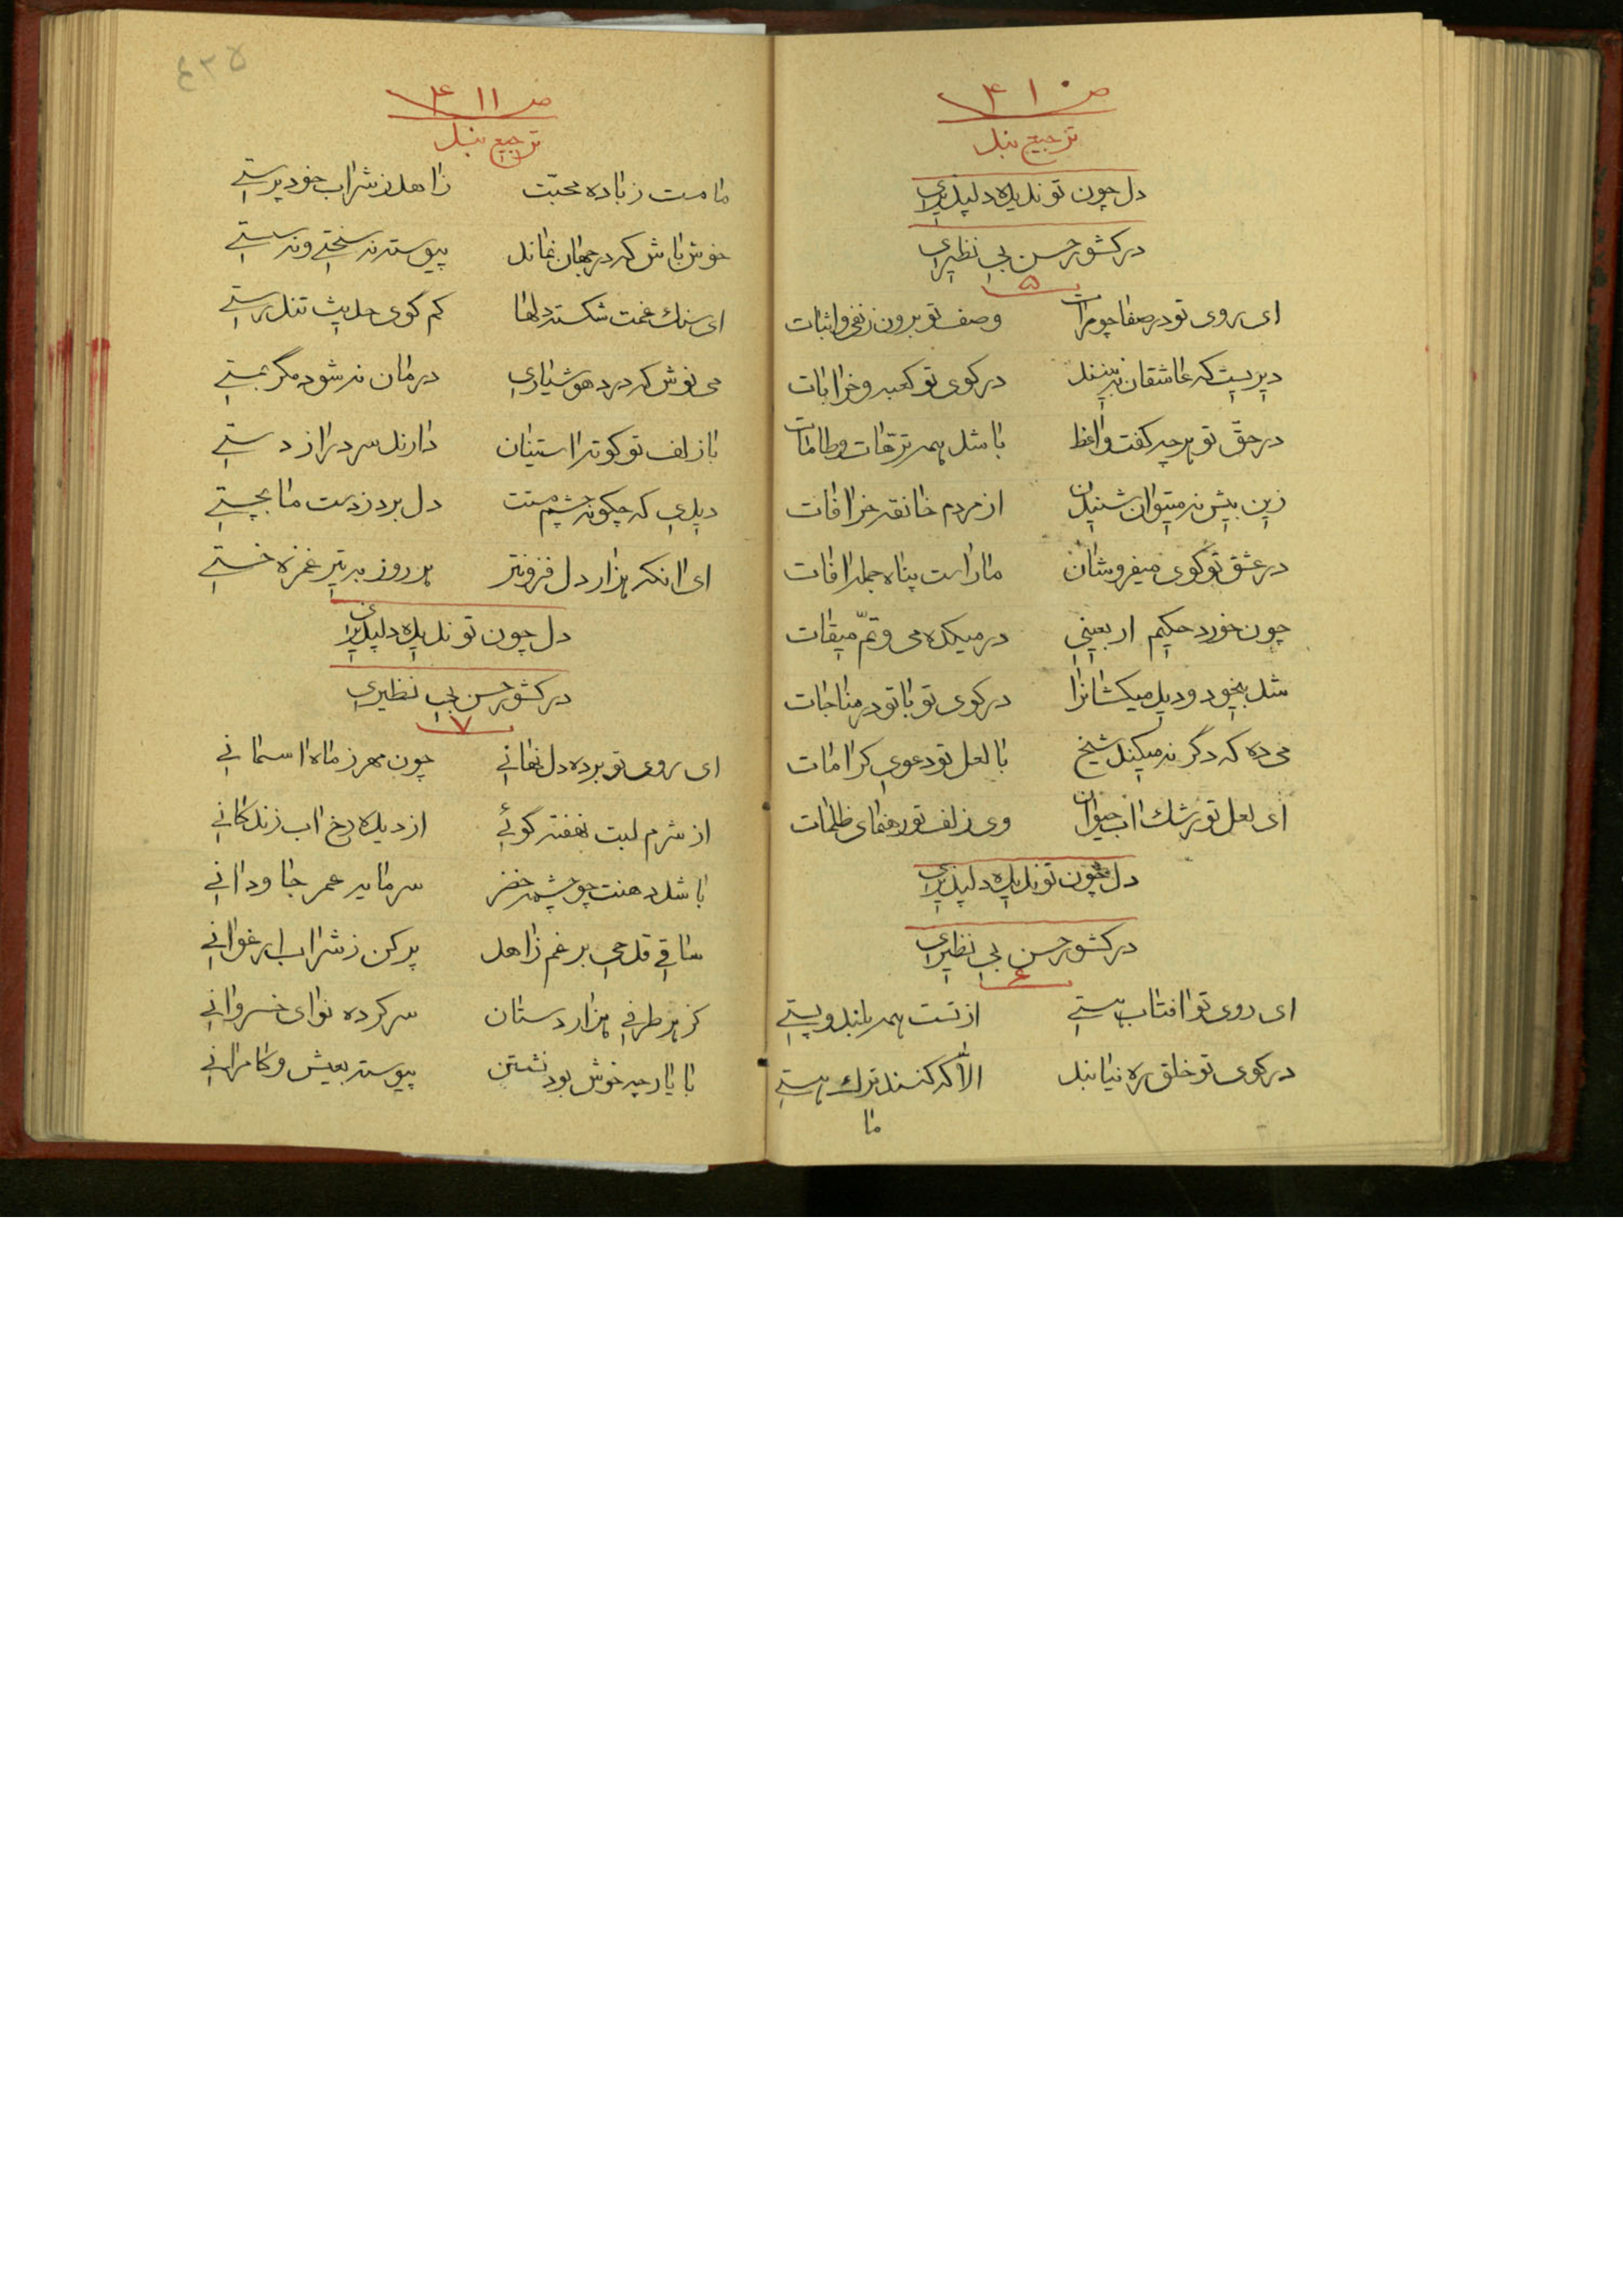 ص ۴۱۰
ترجیع بند
دل چون تو ندیده دلپذیری
در کشور حسن بی نظیری
۵
ای روی تو در صفا چو مرات وصف تو برون ز نفی و اثبات
دیریست که عاشقان نه بینند در کوی تو کعبه و خرابات
در حق تو هرچه گفت واعظ باشد همه ترهات و طامات
زین بیش نه میتوان شنیدن از مردم خانقه خرافات
در عشق تو کوی میفروشان ما راست پناه جمله افات
چون خورد حکیم اربعینی در میکده می و تمّ میقات
شد بیخود و دید میکشانرا در کوی تو با تو در مناجات
می ده که دگر نه میکند شیخ با لعل تو دعوی کرامات
ای لعل تو رشک اب حیوان وی زلف تو رهنمای ظلمات
دل چون تو ندیده دلپذیری
در کشور حسن بی نظیری
۶
ای روی تو افتاب هستی از تست همه بلند و پستی
در کوی تو خلق ره نیابند الا که کنند ترک هستی
ما
۴۳۵
ص ۴۱۱
ترجیع بند
ما مست ز باده محبّت زاهد ز شراب خود پرستی
خوش باش که در جهان نماند پیوسته نه سختی و نه سستی
ای سنک غمت شکسته دلها کم کوی حدیث تندرستی
می نوش که درد هوشیاری درمان نه شود مگر بمستی
با زلف تو کوته استینان دارند سر دراز دستی
دیدی که چکونه چشم مستت دل برد ز دست ما بچستی
ای انکه هزار دل فزونتر هر روز به تیر غمزه خستی
دل چون تو ندیده دلپذیری
در کشور حسن بی نظیری
۷
ای روی تو برده دل نهانی چون مهر ز ماه اسمانی
از شرم لبت نهفته کوئی از دیده رخ اب زندکانی
باشد دهنت چو چشمه خضر سرمایه عمر جاودانی
ساقی قدحی برغم زاهد پر کن ز شراب ارغوانی
کز هر طرفی هزار دستان سر کرده نوای خسروانی
با یار چه خوش بود نشستن پیوسته بعیش و کامرانی